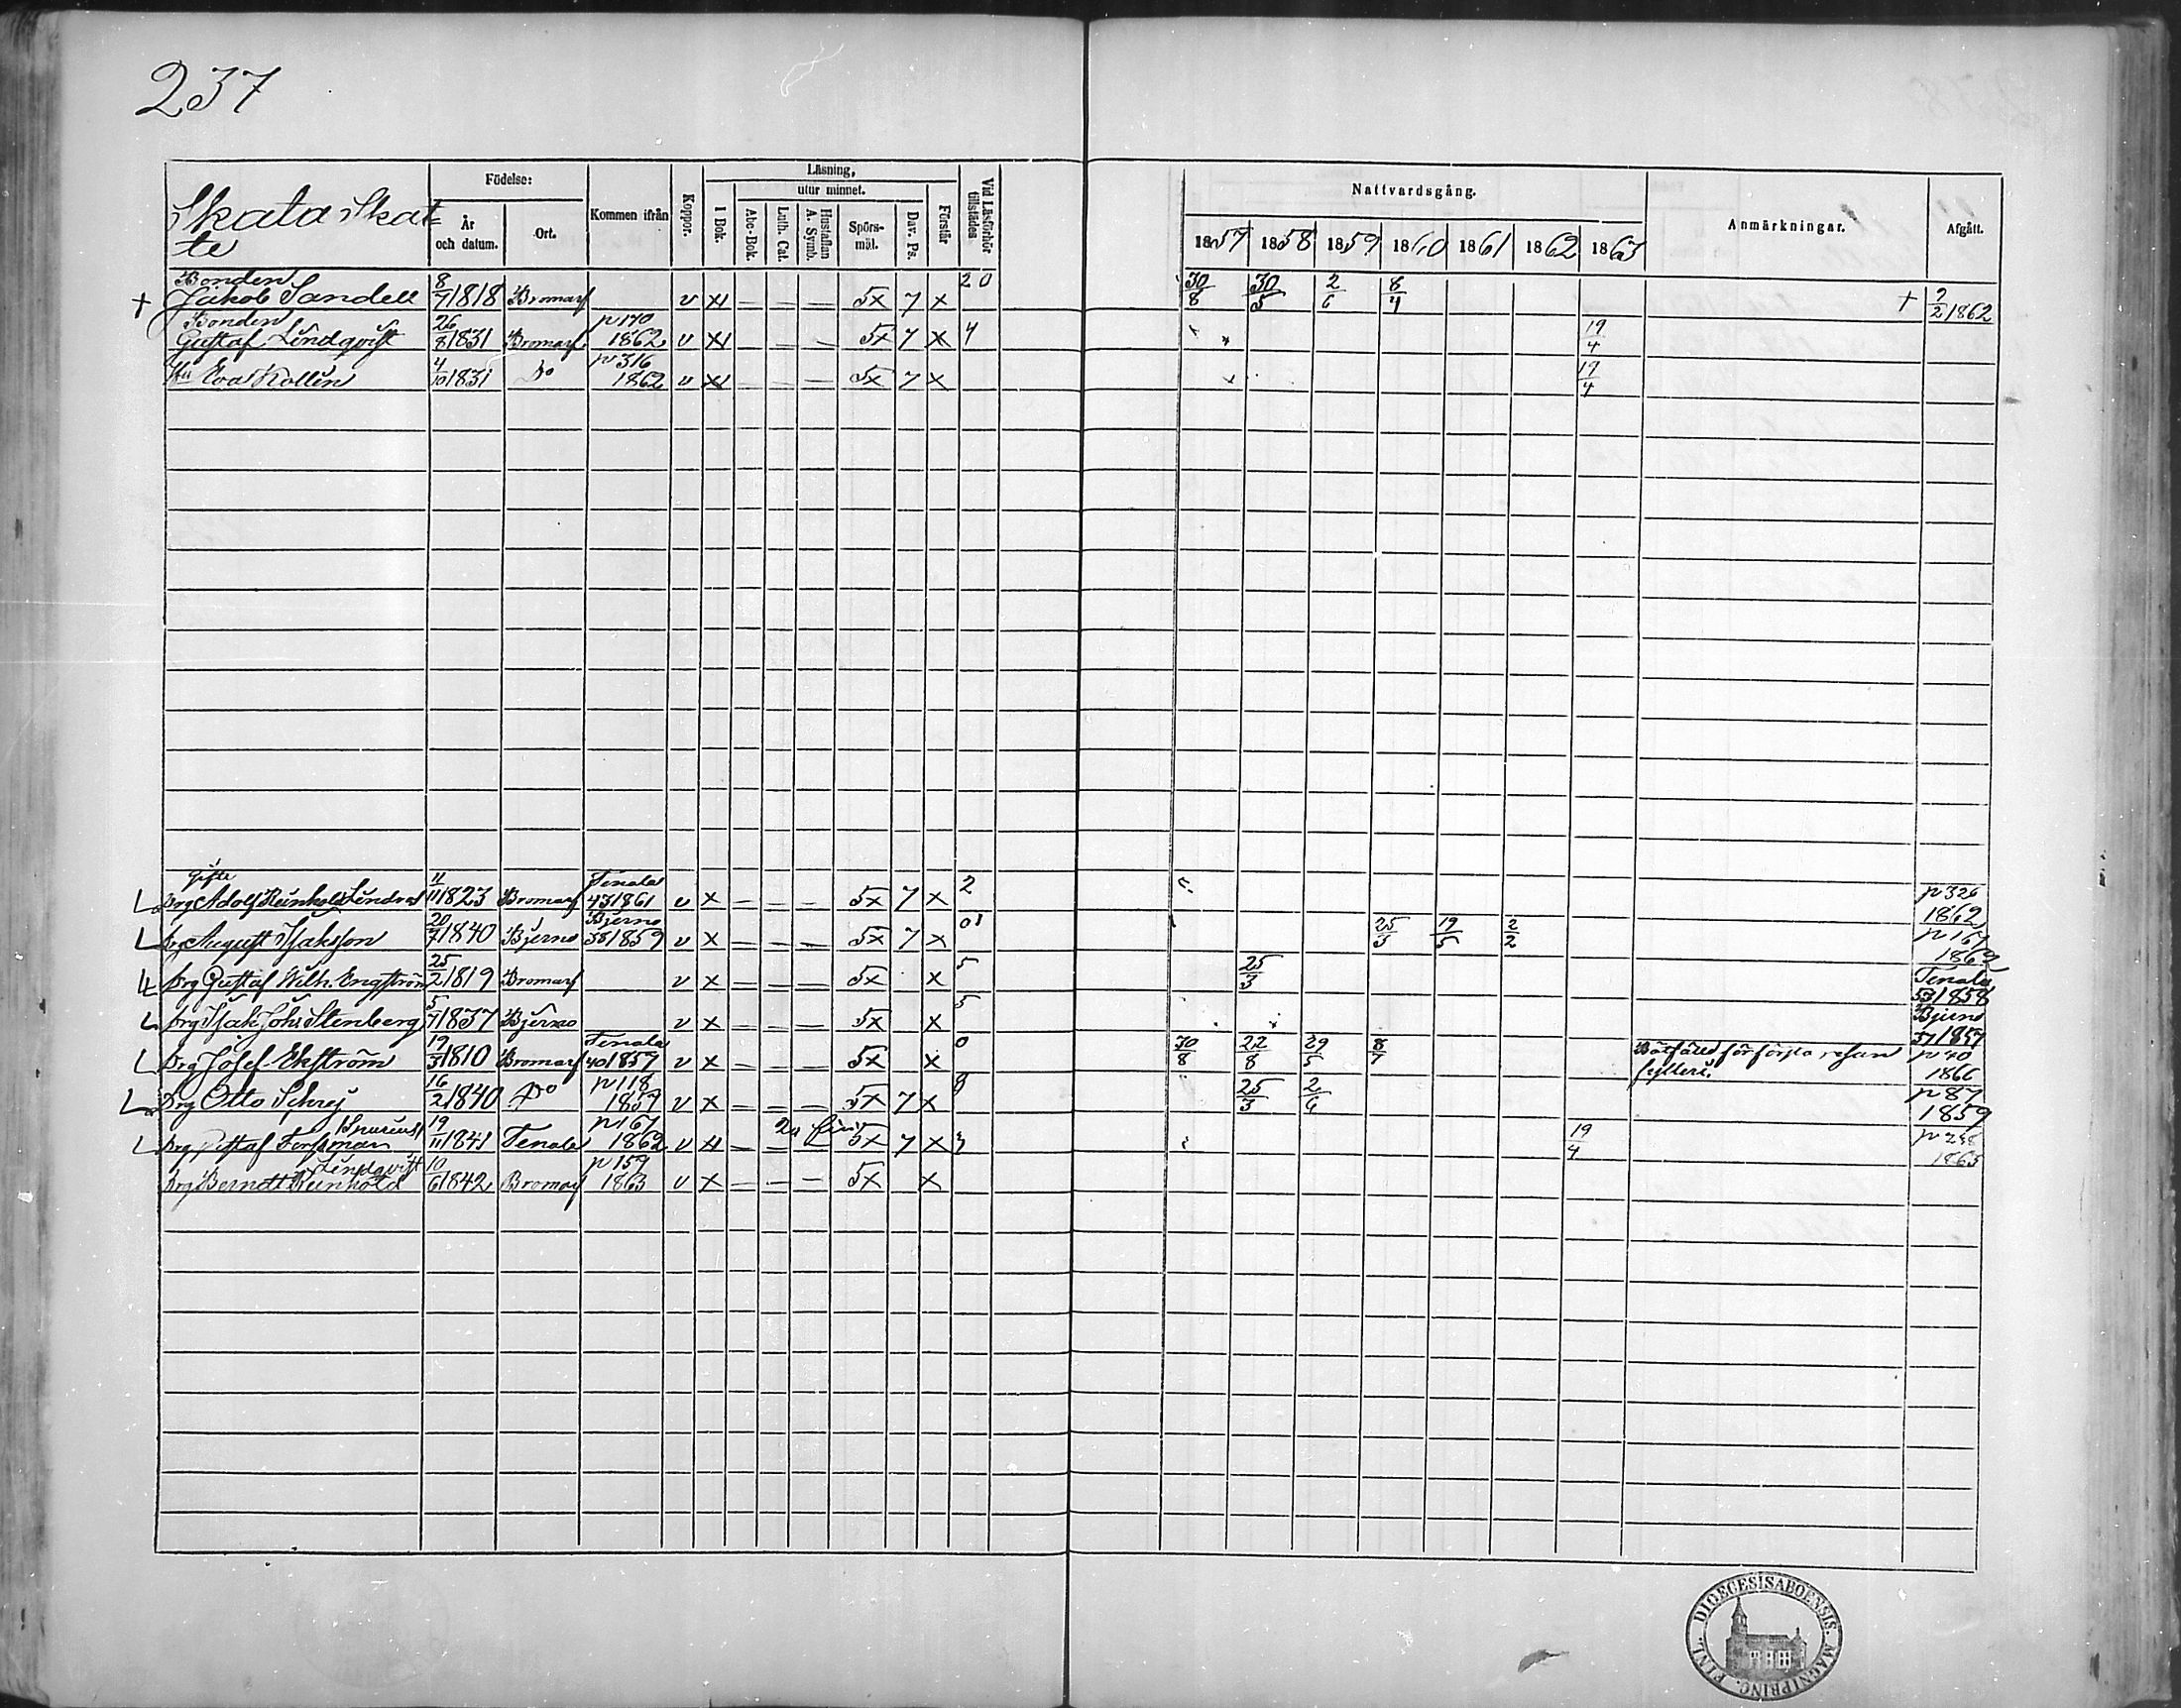 237
Skata Skat-
te
Födelse:
År och datum.
Ort.
Kommen ifrån
Koppor.
Läsning,
I Bok.
utur minnet.
Abc-Bok.
Luth. Cat.
Hustaflan A. Symb.
Spörs-mål.
Dav. Ps.
Förstår
Vid Läsförhör tillstädes.
Nattvardsgång.
1857 1858 1859 1860 1861 1862 1863
Anmärkningar.
Afgått.
Bonden
† Jakob Sandell 8/7 1818 Bromarf v x — — — 5x 7 x 20 30/8 30/5 2/6 8/4 † 7/2 1862
Bonden
Gustaf Lindqvist 26/8 1831 Bromarf p 170 1862 v x — — — 5x 7 x 4 19/4
Hu Eva Kollin 4/10 1831 Do p 316 1862 v x — — — 5x 7 x 19/4
gifte
Drg Adolf Reinhold 11/11 1823 Bromarf Tenala 43 1861 v x — — — 5x 7 x 2 p 326 1862
Drg August Isaksson 20/7 1840 Bjerno Bjerno 38 1859 v x — — — 5x 7 x 25/3 19/5 2/2 p 167 1862
Drg Gustaf Wilh. Engström 25/2 1819 Bromarf v x — — — 5x x 5 25/3 Tenala 53 1858
Drg Isak Joh: Stenberg 5/7 1837 Bjerno v x — — — 5x x 5 Bjerno 57 1857
Drg Josef Ekström 19/3 1810 Bromarf Tenala 40 1857 v x — — — 5x x 0 30/8 22/8 29/5 8/7 Bötfälld för första resan fylleri. p 40 1866
Drg Otto Schrej 16/2 1840 Do p 118 1857 v x — — — 5x 7 x 8 25/3 2/6 p 87 1859
Spurius
Drg Gustaf Forssman 19/11 1841 Tenala p 167 1862 v x — — 5x 7 x 3 19/4 p 238 1865
Lindqvist
Drg Berndt Reinhold 10/6 1842 Bromarf p 159 1863 v x — — — 5x x
FINL. DIOECESIS ABOENSIS. MAGNI PRINC.